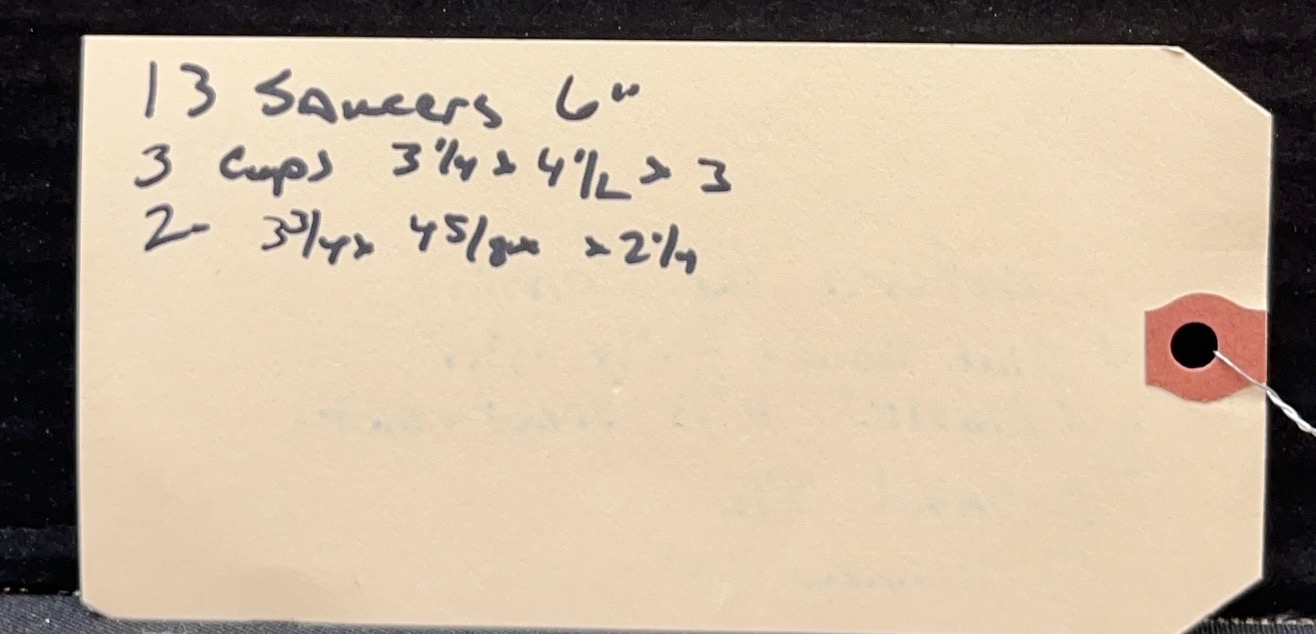 13 Saucers 6"
3 Cups 3 1/4 x 4 1/2 x 3
2 - 3 3/4 x 4 5/8 x x 2 1/4